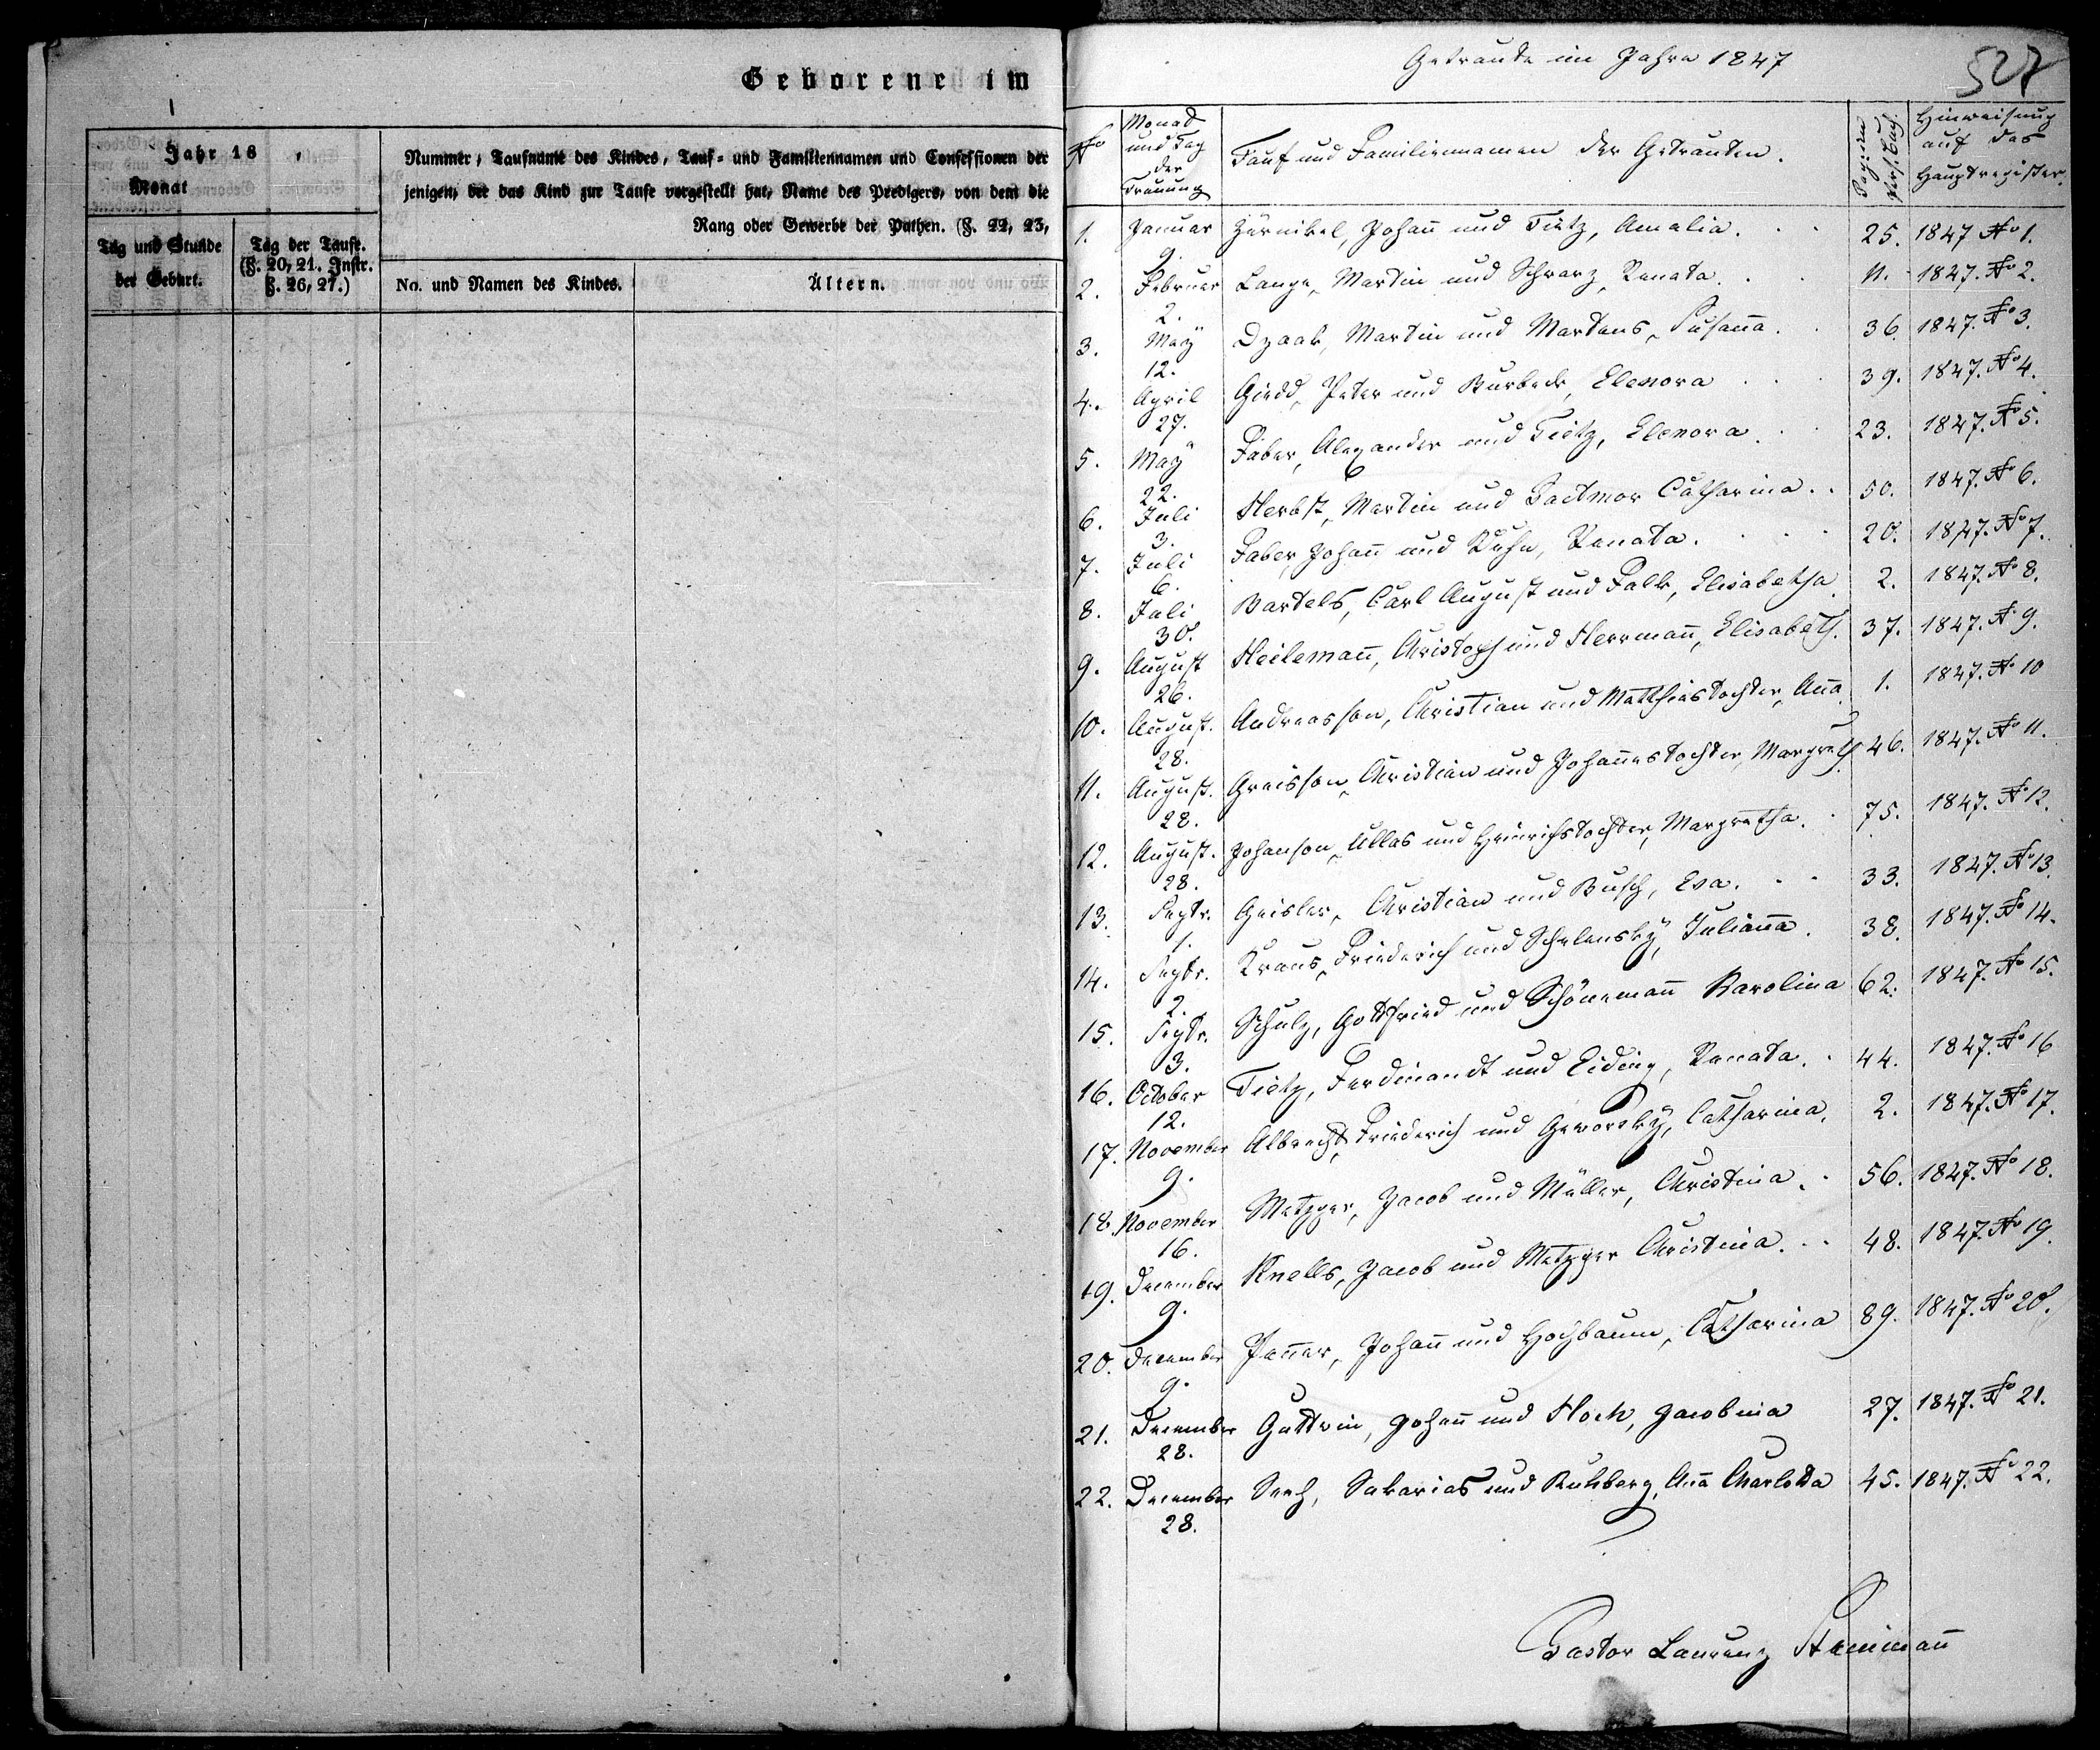 Geborene im
Jahr 18 ,
Monat
Tag und Stunde
der Geburt.
Tag der Taufe.
(§. 20, 21. Instr.
§. 26, 27.)
Nummer, Taufname des Kindes, Tauf- und Familiennamen und Confessionen der
jenigen, der das Kind zur Taufe vorgestellt hat, Name des Predigers, von dem die
Rang oder Gewerbe der Pathen. (§. 22, 23,
No. und Namen des Kindes.
Ältern.
Getraute im Jahre 1847
527
No
Monat und Tag der Trauung
Tauf und Familiennamen der Getrauten.
Hinweisung auf das Hauptregister.
1. Januar 9. Zärnikel, Johann̄ und Tietz, Amalia. 25. 1847 No 1.
2. Februar 2. Lange, Martin und Schwarz, Renata. 11. 1847. No 2.
3. May 12. Dzaak, Martin und Martens, Susan̄a. 36. 1847. No 3.
4. April 27. Giedd, Peter und Burbeck, Elenora 39. 1847. No 4.
5. May 22. Faber, Alexander und Tietz, Elenora. 23. 1847. No 5.
6. Juli 3. Herbst, Martin und Catharina. 50. 1847. No 6.
7. Juli 6. Faber, Johan̄ und Kuhn, Renata. 20. 1847. No 7.
8. Juli 30. Bartels, Carl August und Falk, Elisabetha 2. 1847. No 8.
9. August 26. Heileman̄, Christoph und Herrman̄, Elisabeth. 37. 1847. No 9.
10. August. 28. Andreasson, Christian und Matthiastochter, An̄a 1. 1847. No 10
11. August. 28. Greisson, Christian und Johan̄estochter, Margreth 46. 1847. No 11.
12. August. 28. Johanson, Ullas und Hinrichstochter, Margretha. 75. 1847. No 12.
13. Septr. 1. Geisler, Christian und Busch, Eva. 33. 1847. No 13.
14. Septr. 2. Kraus, Friederich und Schelensky, Julian̄a. 38. 1847. No 14.
15. Septr. 3. Schulz, Gottfried und Schöneman̄ Karolina 62. 1847. No 15.
16. October 12. Tietz, Ferdinandt und Eiding, Renata. 44. 1847. No 16
17. November 9. Albrecht, Friederich und Geworsky, Catharina. 2. 1847. No 17.
18. November 16. Metzger, Jacob und Müller, Christina. 56. 1847. No 18.
19. December 9. Knells, Jacob und Metzger Christina. 48. 1847. No 19.
20. December 9. Pan̄er, Johan̄ und Hochbaum, Catharina 89. 1847. No 20.
21. December 28. Guttwin, Johan̄ und Hoch, Jacobina 27. 1847. No 21.
22. December 28. Seeh, Sakarias und Kuhberg, An̄a Charlotta 45. 1847. No 22.
Pastor Laurenz Steiniman̄